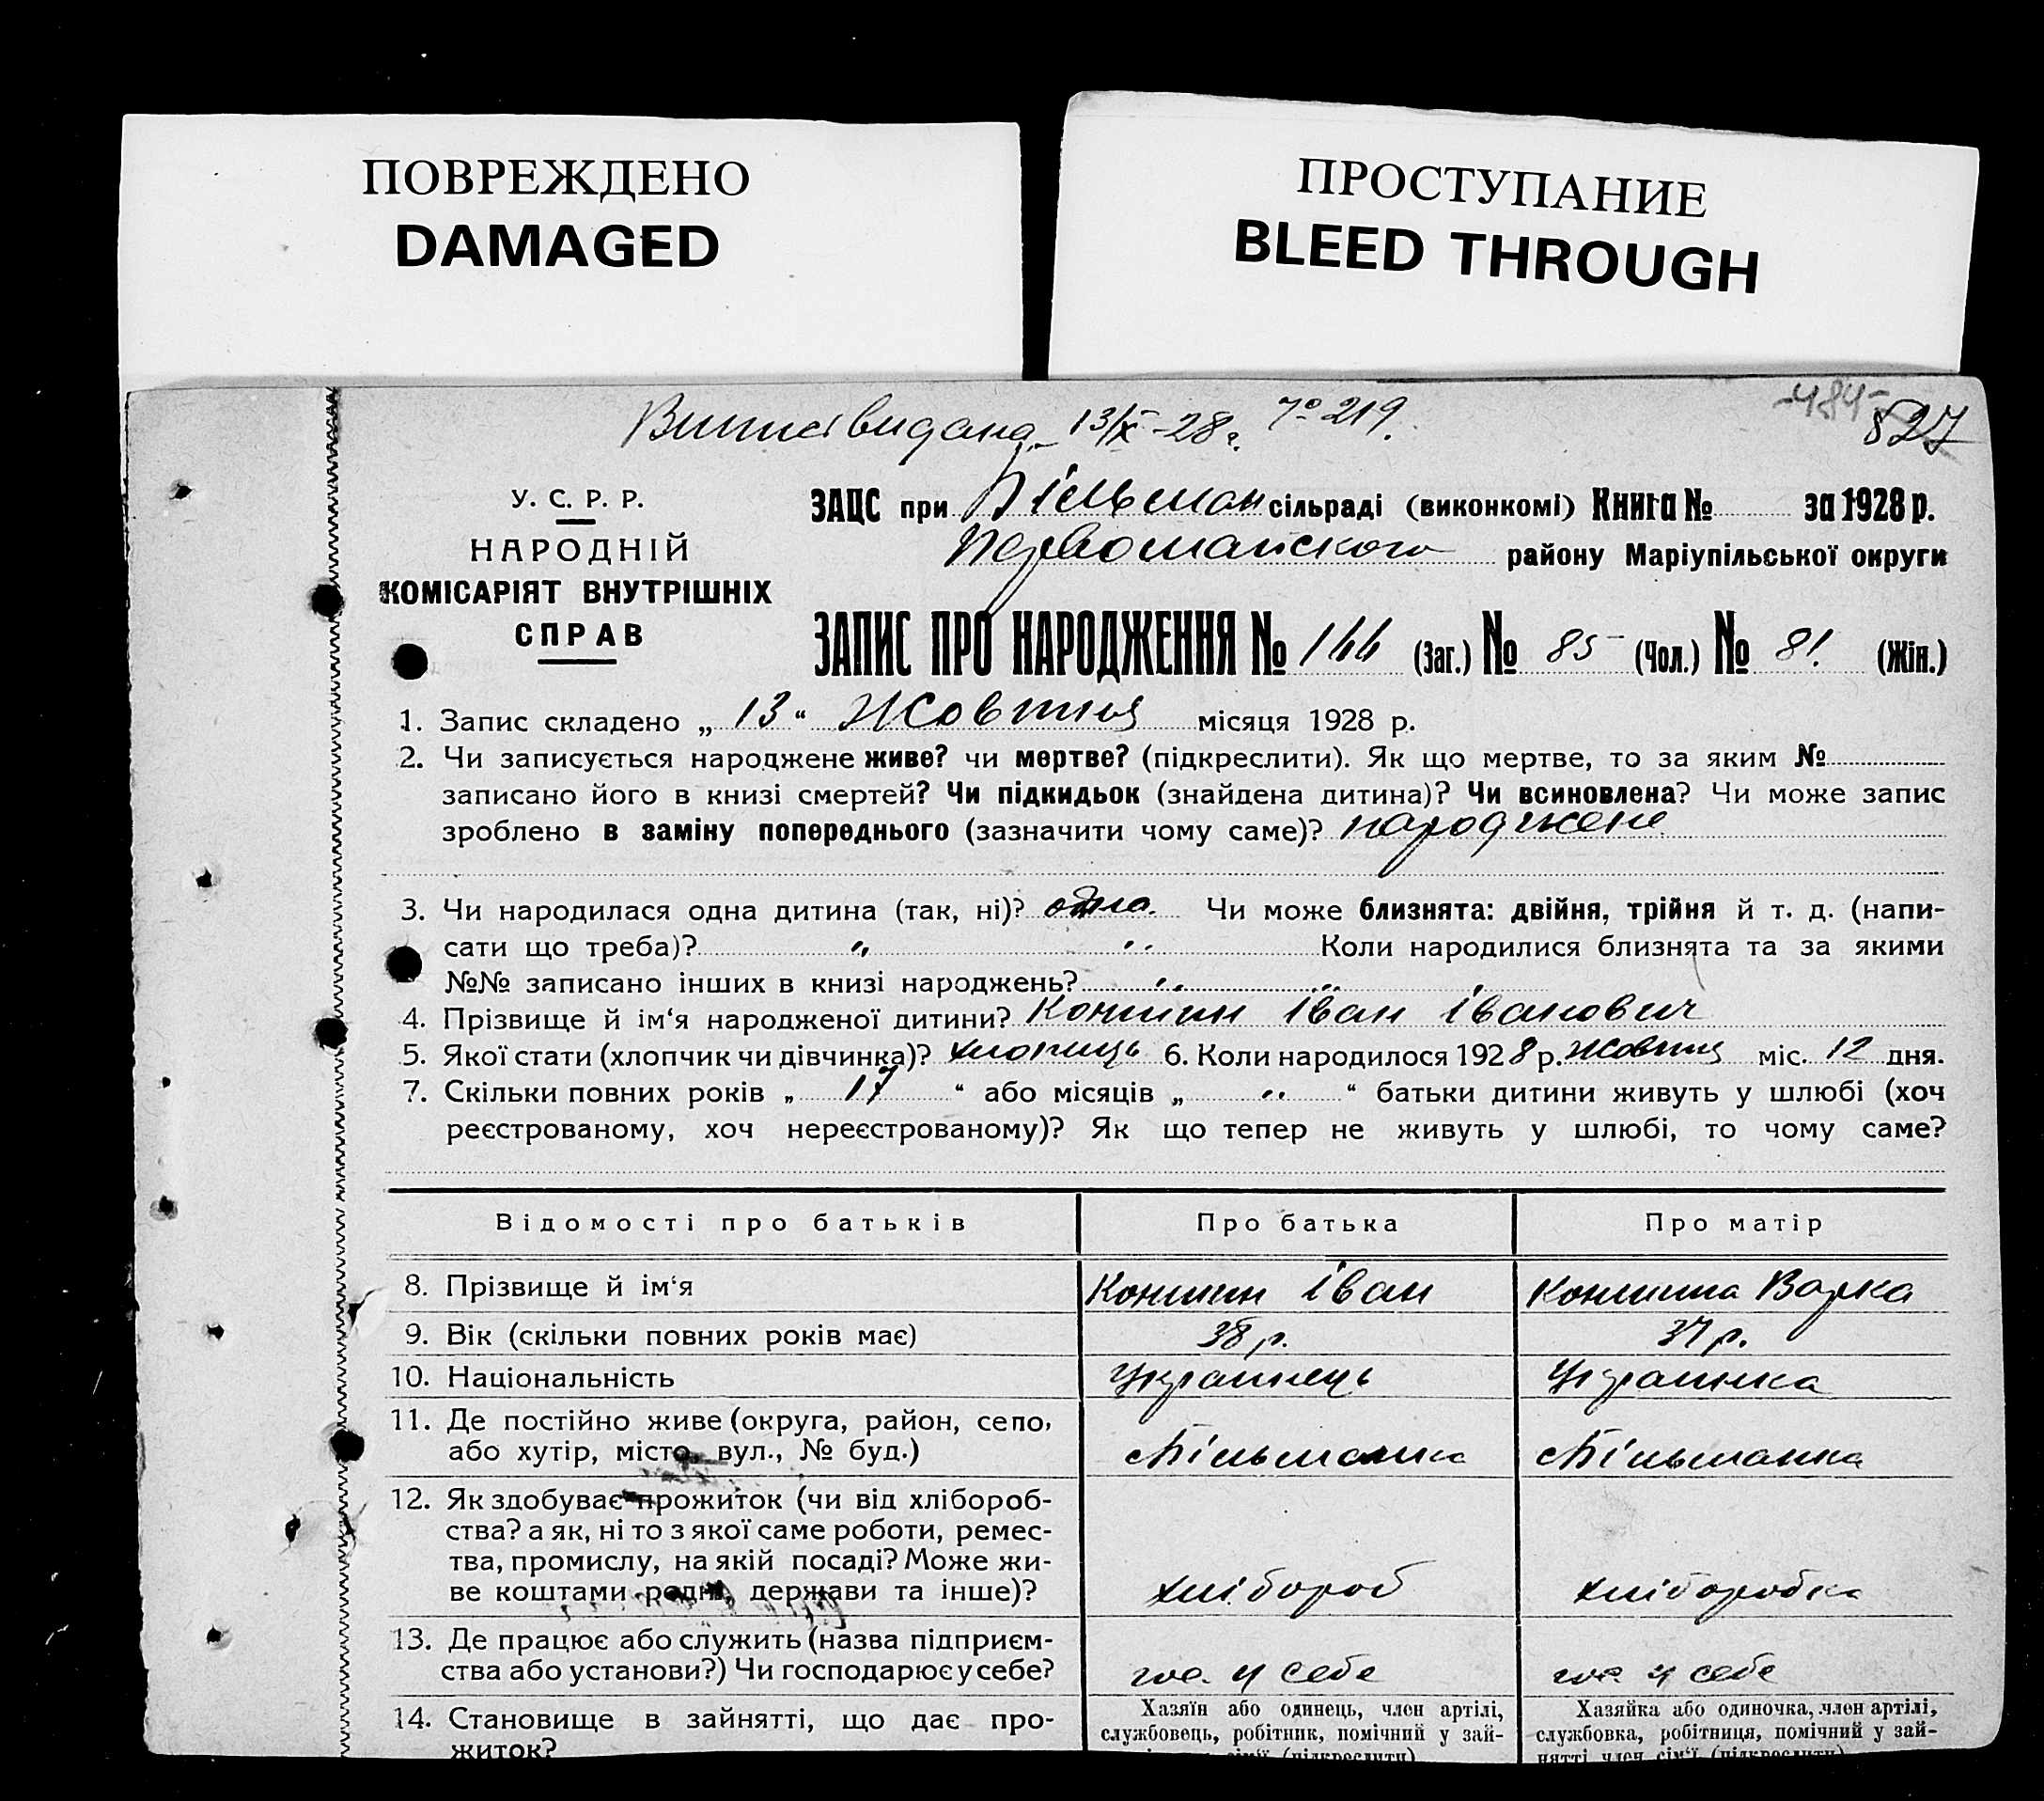 ПОВРЕЖДЕНО
DAMAGED
ПРОСТУПАНИЕ
BLEED THROUGH
-484-
827
видана 13/X-28г. № 219.
У. С. Р. Р.
НАРОДНІЙ
КОМІСАРІЯТ ВНУТРІШНІХ
СПРАВ
ЗАЦС при Більман сільраді (виконкомі) Книга № за 1928 р.
Первомайского району Маріупільської округи
ЗАПИС ПРО НАРОДЖЕННЯ № 166 (Заг.) № 85 (Чол.) № 81. (Жін.)
1. Запис складено „ 13 “ Жовтня місяця 1928 р.
2. Чи записується народжене живе? чи мертве? (підкреслити). Як що мертве, то за яким №
записано його в книзі смертей? Чи підкидьок (знайдена дитина)? Чи всиновлена? Чи може запис
зроблено в заміну попереднього (зазначити чому саме)? народжене
3. Чи народилася одна дитина (так, ні)? одна. Чи може близнята: двійня, трійня й т. д. (напи-
сати що треба)? „ „ Коли народилися близнята та за якими
№№ записано інших в книзі народжень? „ „
4. Прізвище й ім‘я народженої дитини? Коншин Іван Іванович
5. Якої стати (хлопчик чи дівчинка)? хлопець 6. Коли народилося 1928 р. Жовтня міс. 12 дня.
7. Скільки повних років „ 17 “ або місяців „ „ “ батьки дитини живуть у шлюбі (хоч
реєстрованому, хоч нереєстрованому)? Як що тепер не живуть у шлюбі, то чому саме?
Відомості про батьків Про батька Про матір
8. Прізвище й ім‘я Коншин Іван Коншина Варка
9. Вік (скільки повних років має) 38 р. 37 р.
10. Національність Українець Українка
11. Де постійно живе (округа, район, село,
або хутір, місто, вул., № буд.) с Більманка с Більманка
12. Як здобуває прожиток (чи від хлібороб-
ства? а як, ні то з якої саме роботи, ремес-
тва, промислу, на якій посаді? Може жи-
ве коштами родні, держави та інше)? хлібороб хліборобка
13. Де працює або служить (назва підприєм-
ства або установи?) Чи господарює у себе? гос. у себе гос. у себе
14. Становище в зайнятті, що дає про-
житок?
Хазяїн або одинець, член артілі,
службовець, робітник, помічний у зай-
Хазяйка або одиночка, член артілі,
службовка, робітниця, помічний у зай-
нятті член сім‘ї (підкреслити)